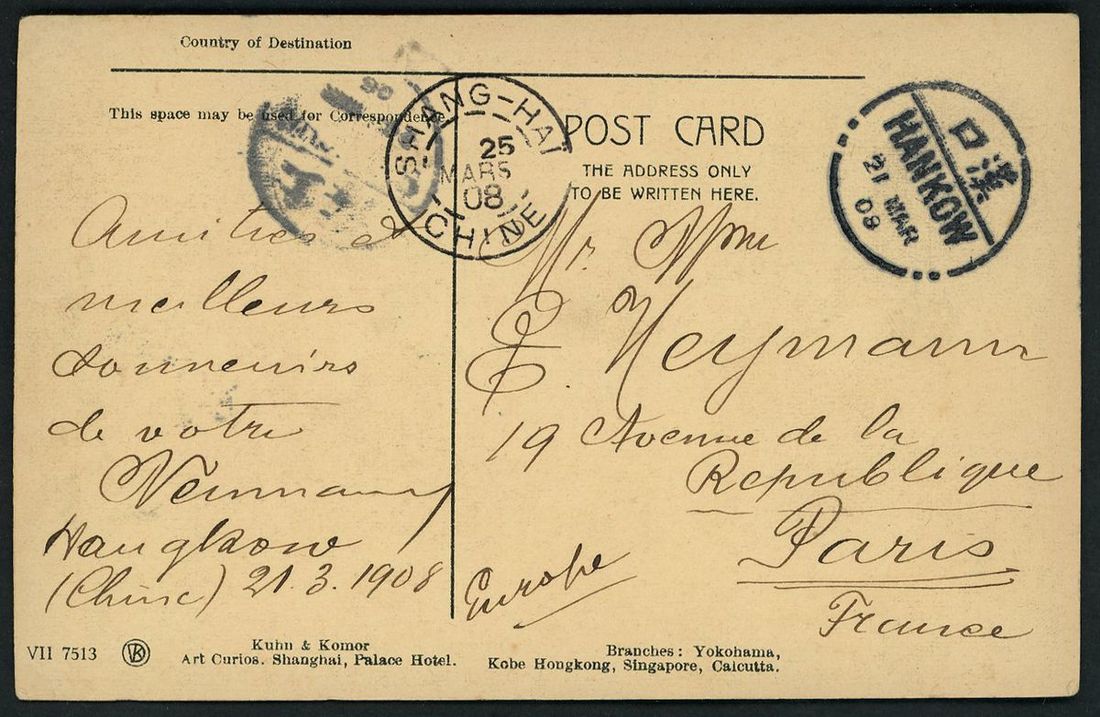 Country of Destination
This space may be used for Correspondence.
POST CARD
THE ADDRESS ONLY
TO BE WRITTEN HERE.
SHANG-HAI
25
MARS
08
CHINE
口漢
HANKOW
21 MAR
08
Amitiés et
meilleurs
souvenirs
de votre
Neumann
Hangkow
(Chine) 21.3.1908
Mr. Mme
E. Heymann
19 Avenue de la
Republique
Paris
France
Europe
VII 7513
Kuhn & Komor
Art Curios. Shanghai, Palace Hotel.
Branches: Yokohama,
Kobe Hongkong, Singapore, Calcutta.